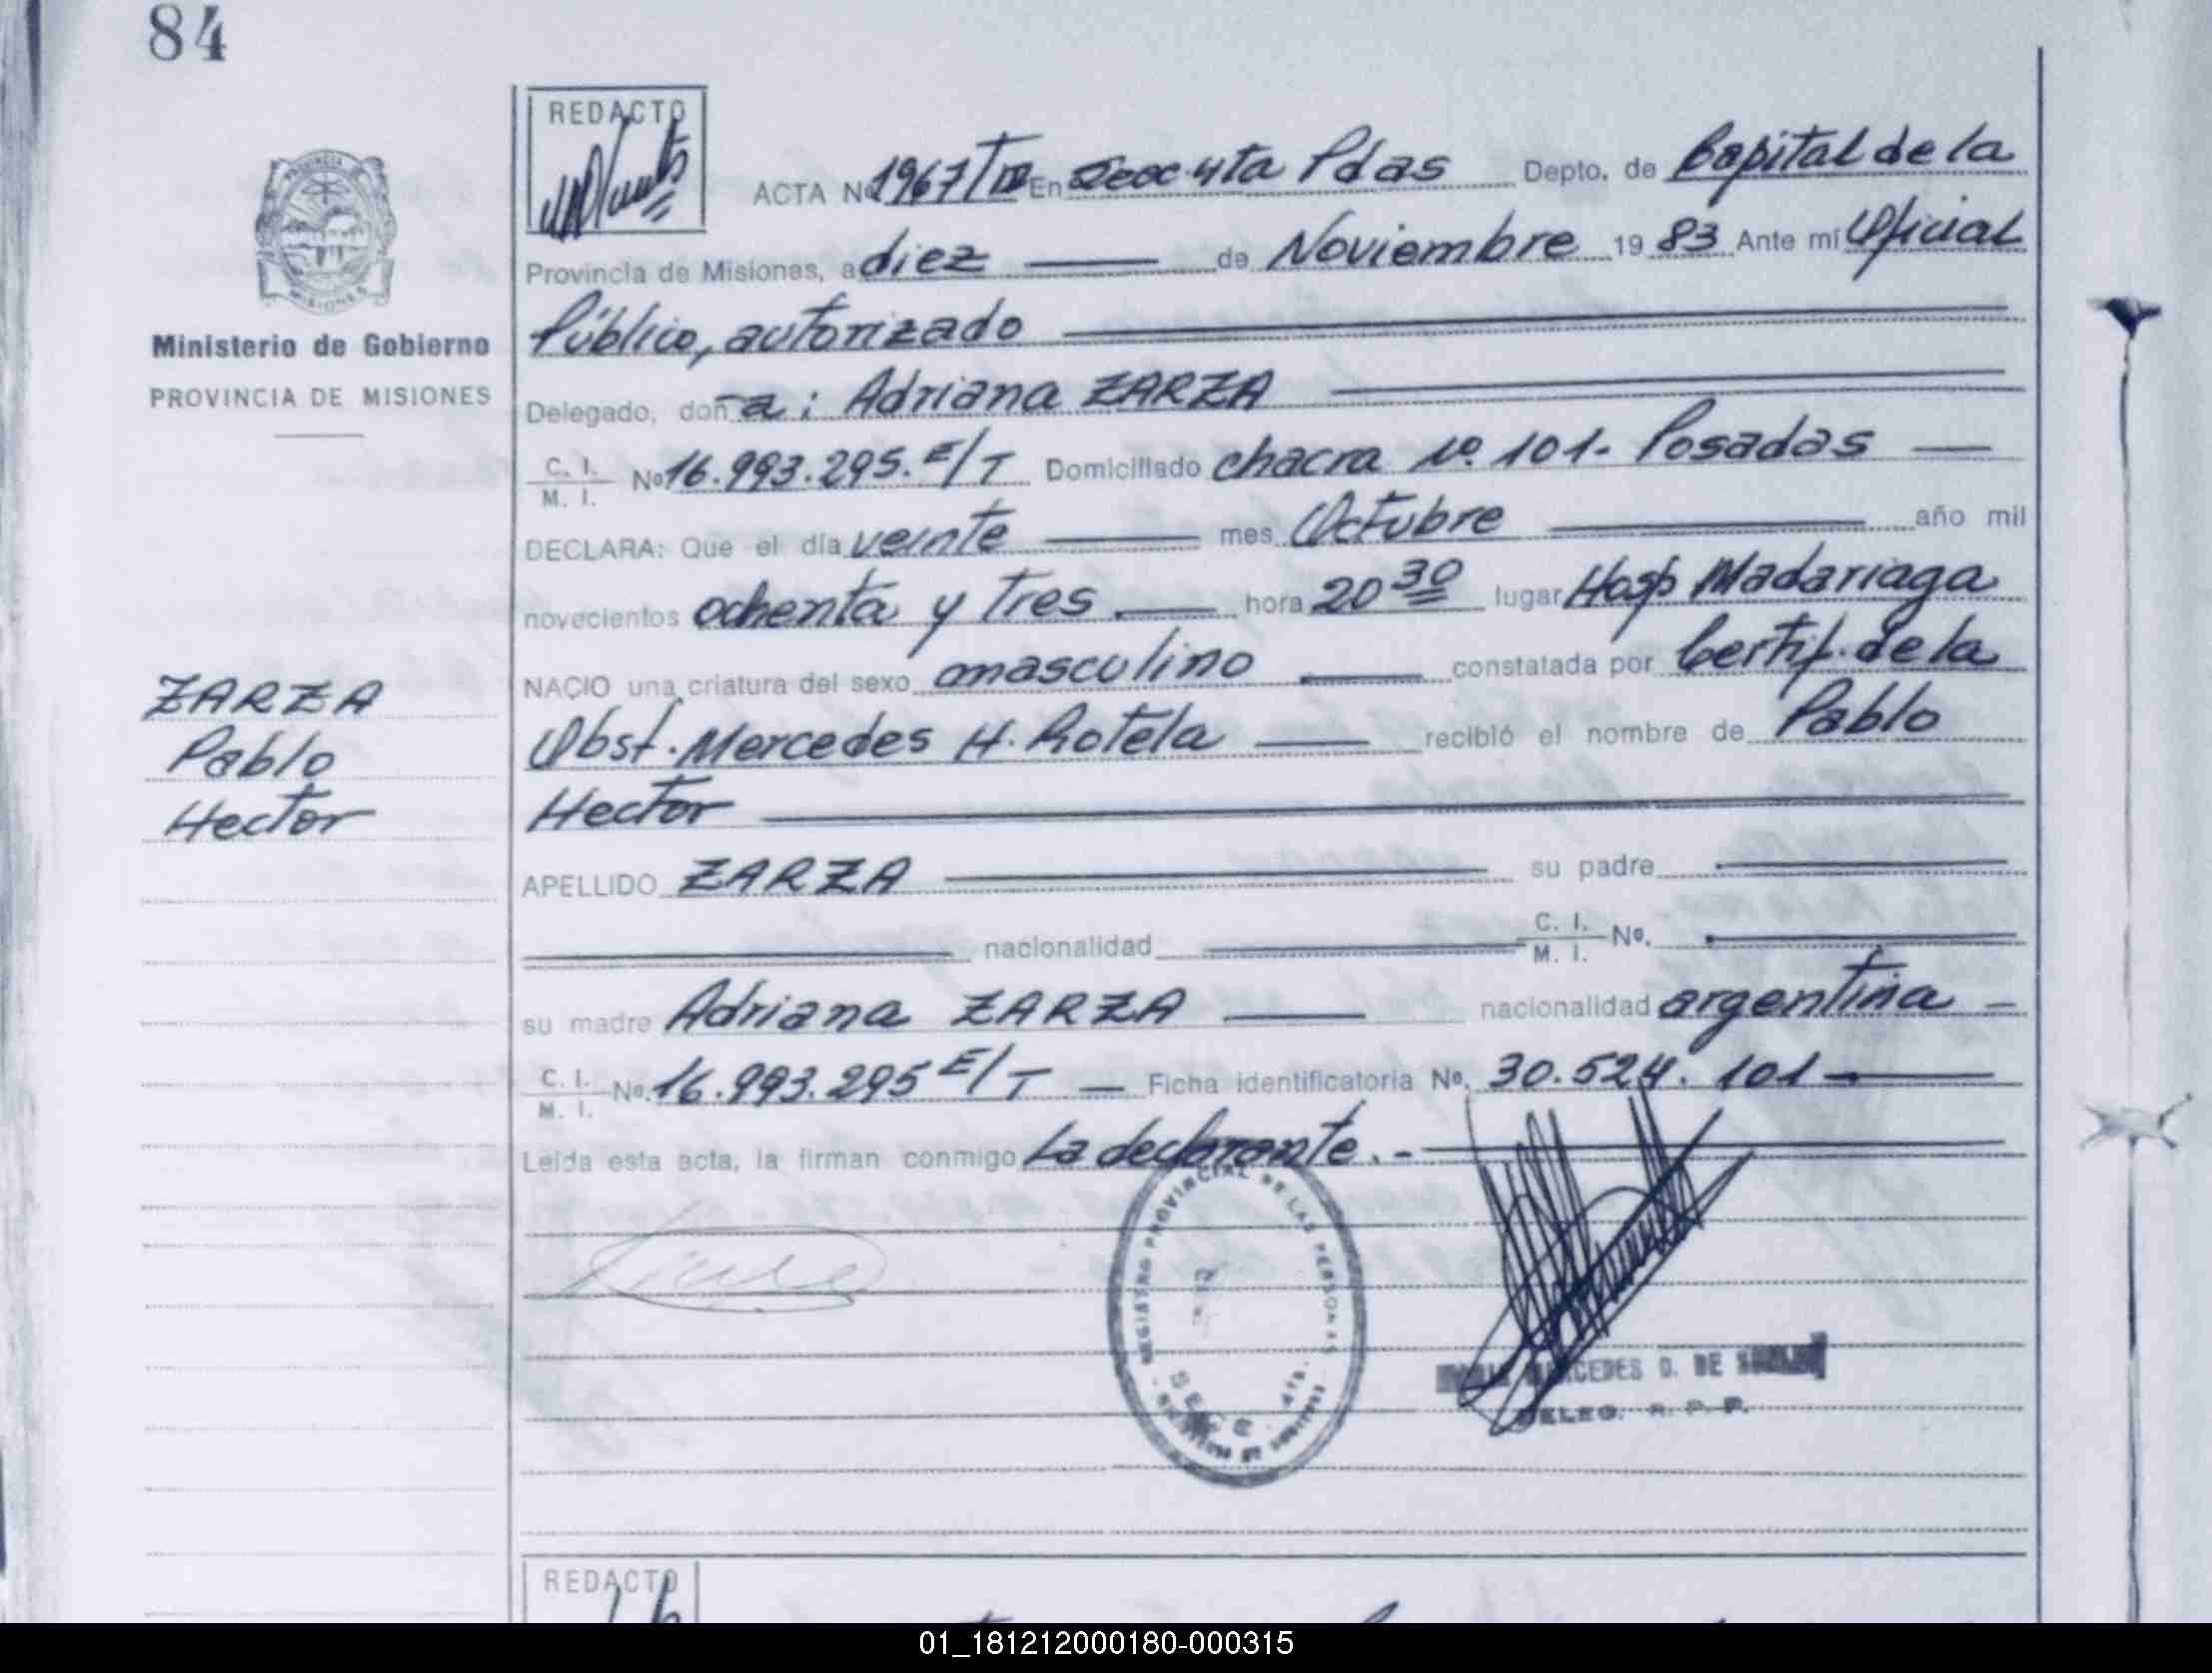 84
REDACTO
ACTA Nº 1967/III En Secc 4ta Pdas Depto. de Capital de la
Provincia de Misiones, a diez de Noviembre 1983 Ante mí Oficial
Público, autorizado
Delegado, doña: Adriana ZARZA
C. I. / M. I. Nº 16.993.295. E/T Domiciliado chacra Nº 101- Posadas
DECLARA: Que el día veinte mes Octubre año mil
novecientos ochenta y tres hora 20 30 lugar Hosp Madariaga
NACIO una criatura del sexo masculino constatada por Certif. de la
Obst. Mercedes H. Rotela recibió el nombre de Pablo
Hector
APELLIDO ZARZA su padre
nacionalidad C. I. / M. I. Nº.
su madre Adriana ZARZA nacionalidad argentina
C. I. / M. I. Nº. 16.993.295 E/T Ficha identificatoria Nº. 30.524.101
Leída esta acta, la firman conmigo La declarante.-
PROVINCIA
MISIONES
Ministerio de Gobierno
PROVINCIA DE MISIONES
ZARZA
Pablo
Hector
REGISTRO PROVINCIAL DE LAS PERSONAS
MERCEDES D. DE
DELEG. R. P. P.
REDACTO
01_181212000180-000315